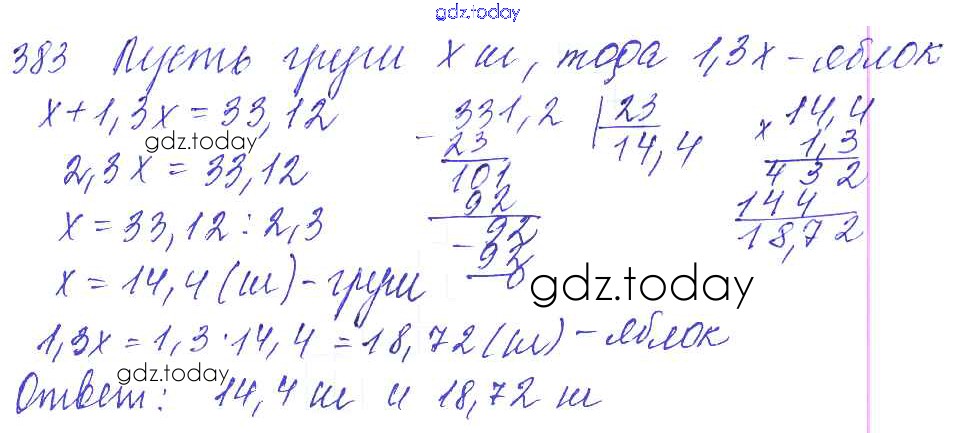 gdz.today
383 Пусть груш х ш, тода 1,3х - яблок
х+1,3х = 33,12
gdz.today
2,3х = 33,12
х = 33,12 : 2,3
х = 14,4 (ш) - груш
1,3х = 1,3 · 14,4 = 18,72 (ш) - яблок
gdz.today
Ответ: 14,4 ш и 18,72 ш
331,2 | 23
- 23 14,4
101
92
- 92
92
0
gdz.today
14,4
х 1,3
432
144
18,72